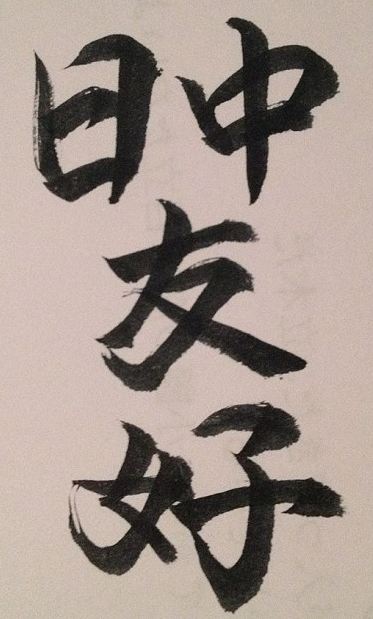 日中
友
好